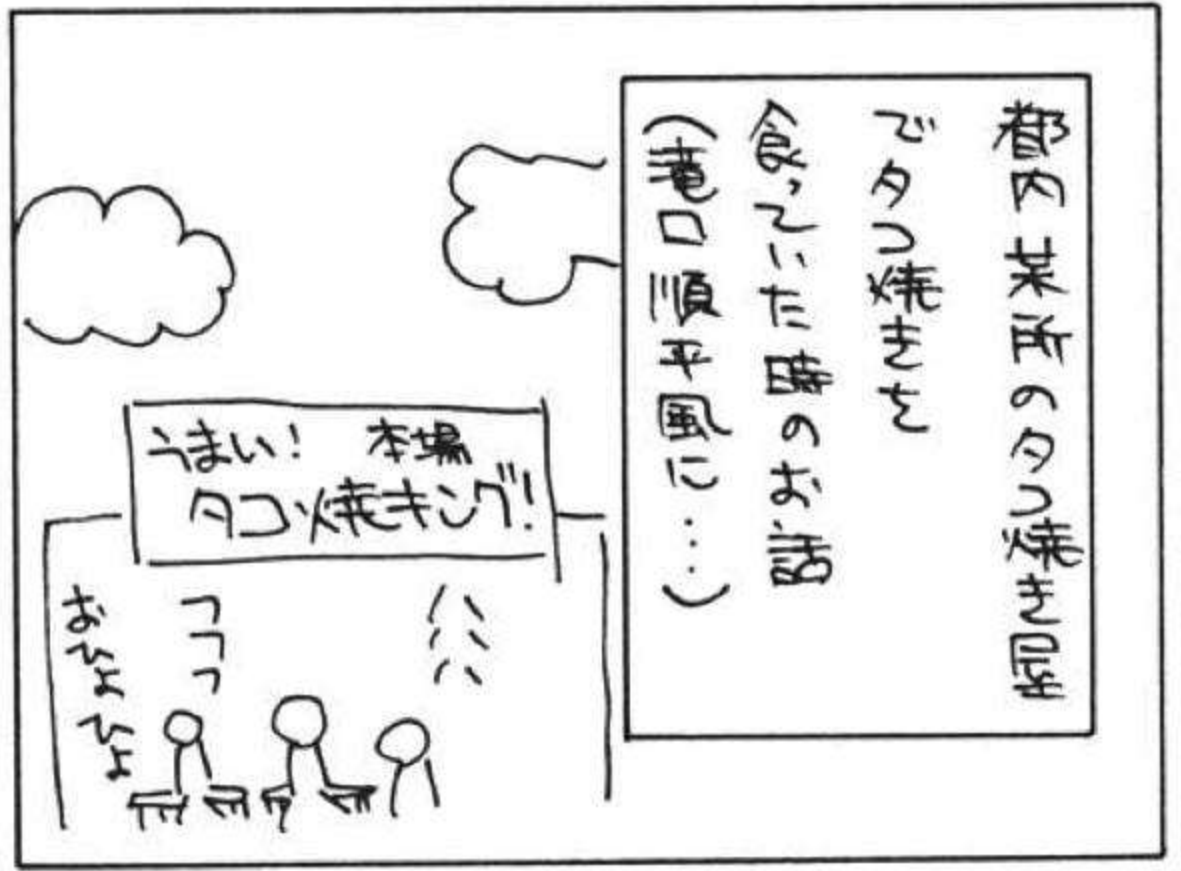 都内某所のタコ焼き屋
でタコ焼きを
食っていた時のお話
(滝口順平風に…)
うまい! 本場
タコ焼キング!
ハハハ
フフフ
おひょひょ